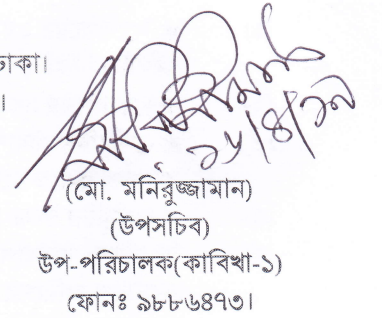 ঢাকা।
।
১৮/৪/১৭
(মো. মনিরুজ্জামান)
(উপসচিব)
উপ-পরিচালক(কাবিখা-১)
ফোনঃ ৯৮৮৬৪৭৩।